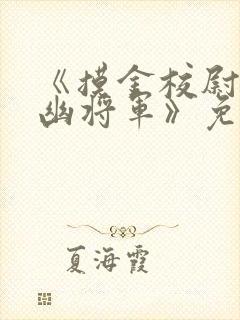 《摸金校尉
幽将军》免
夏海霞